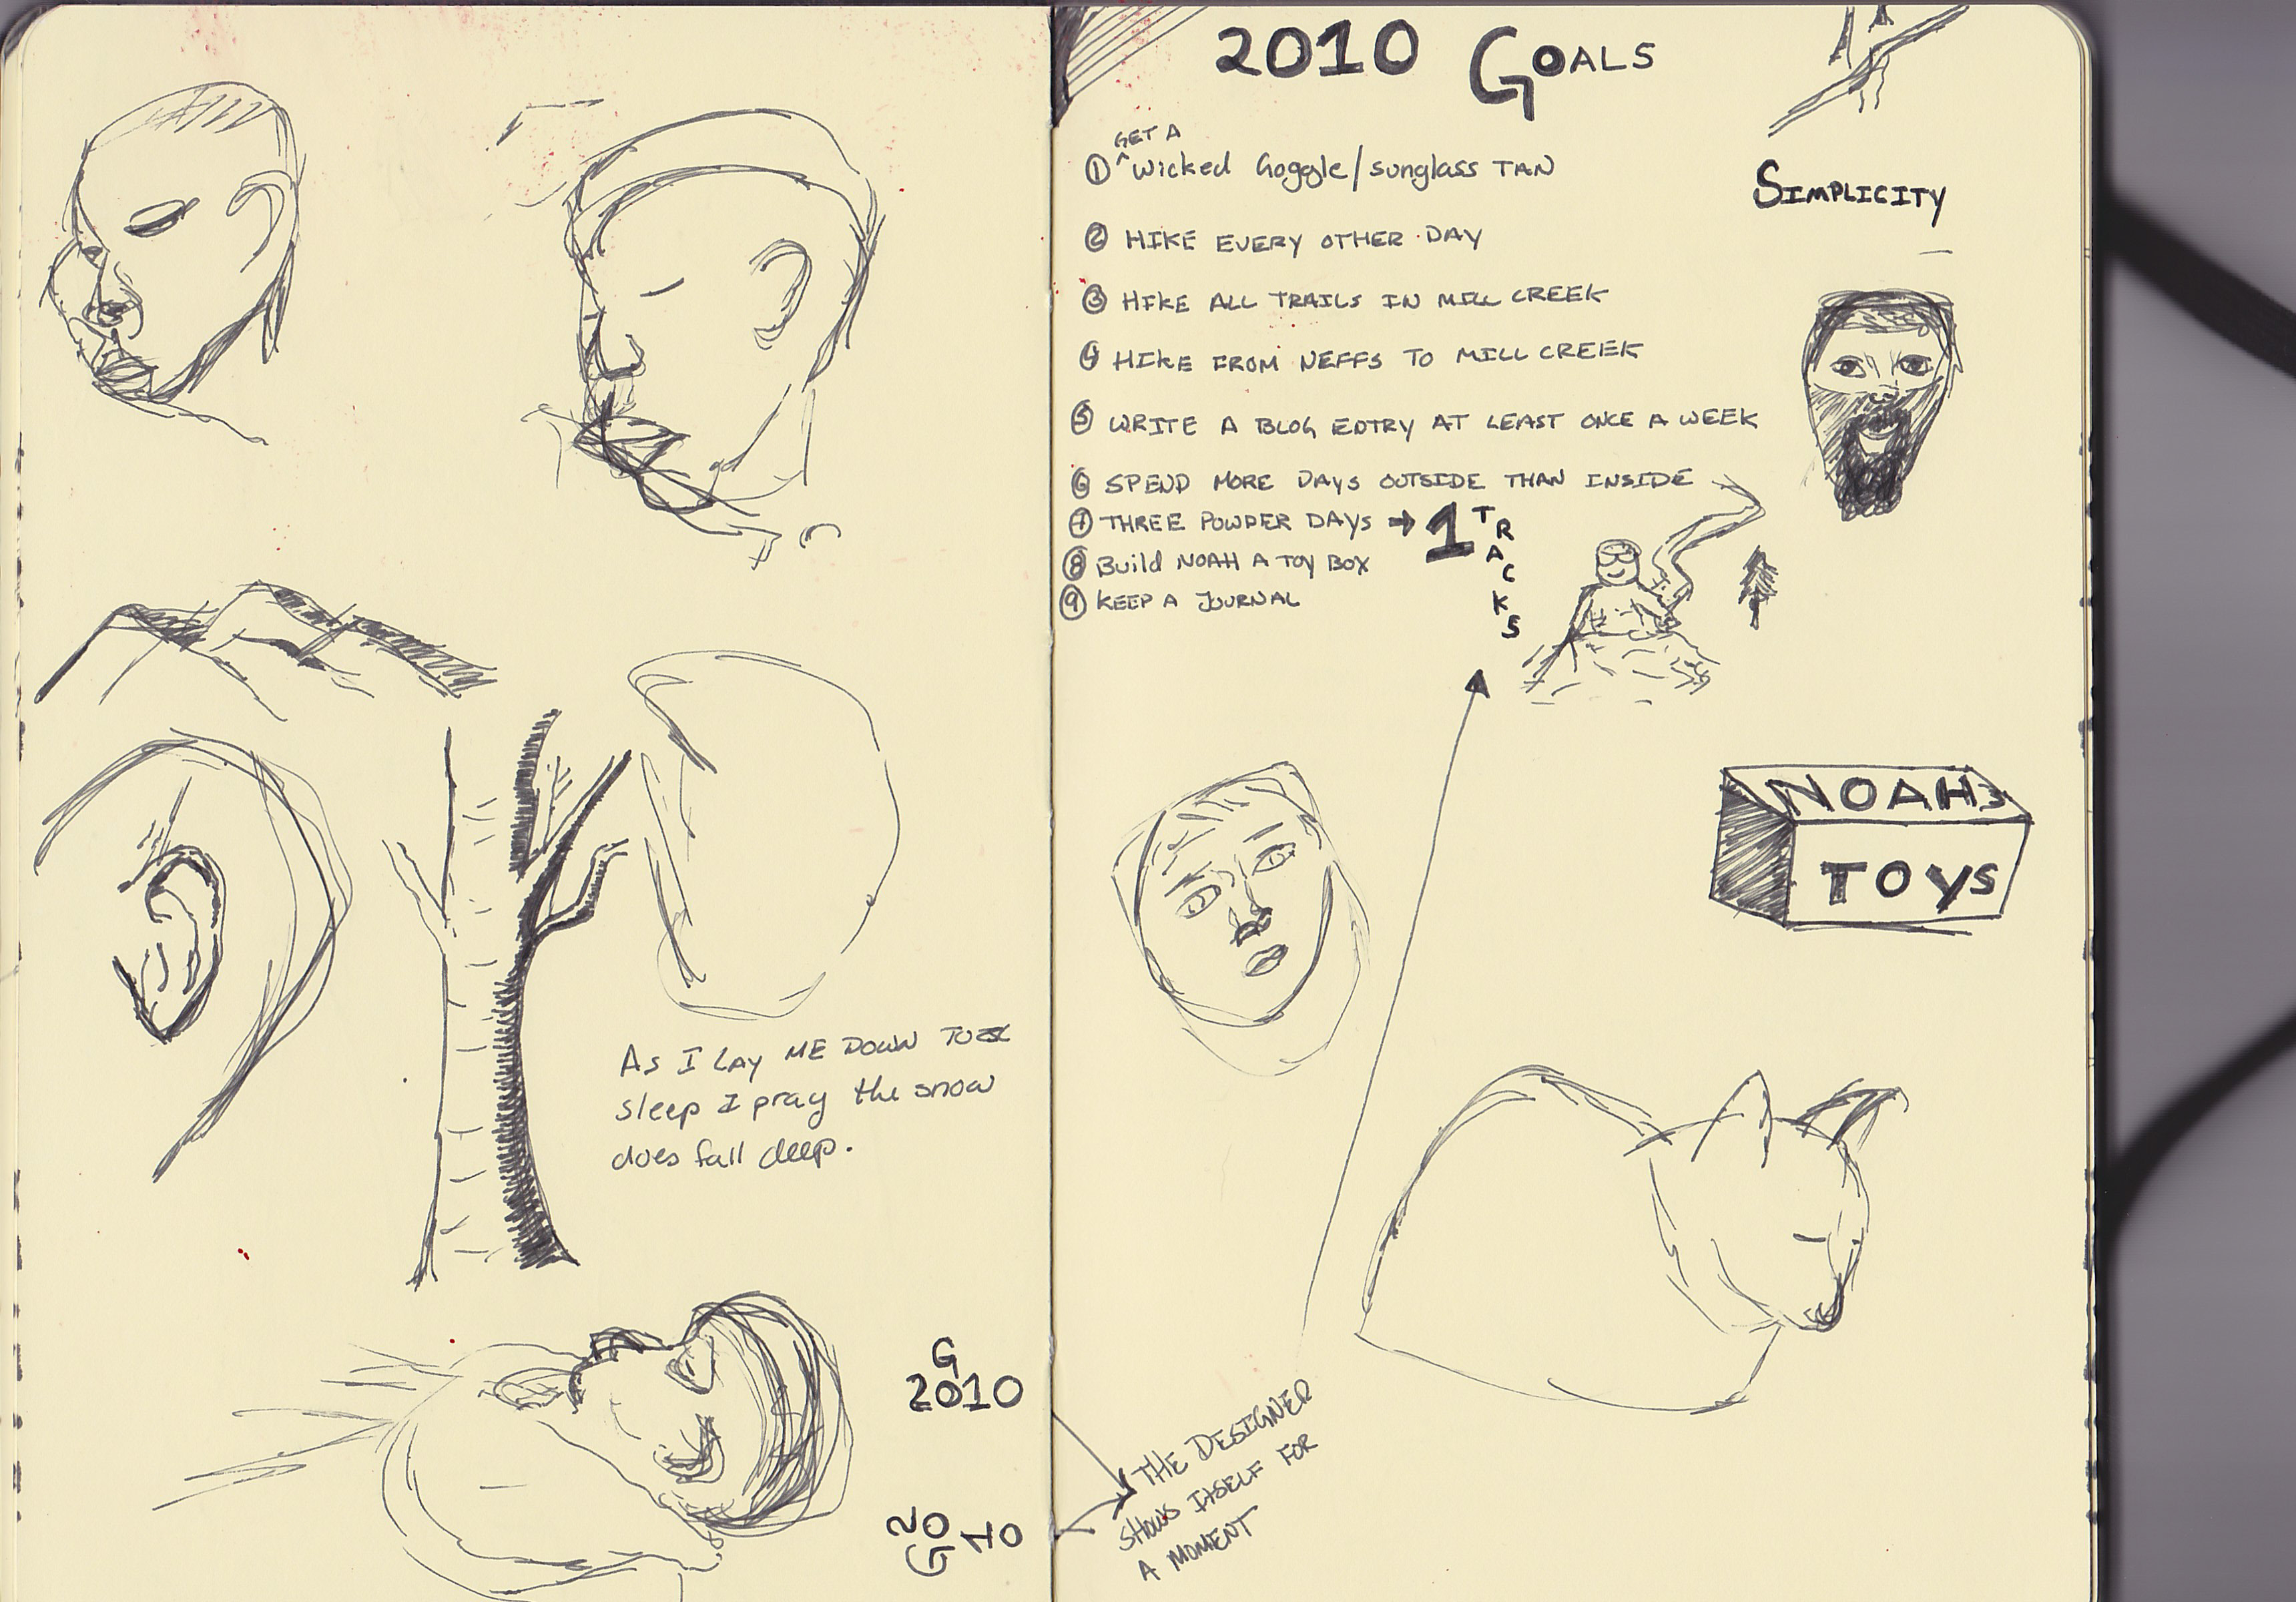 As I LAY ME DOWN TO
sleep I pray the snow
does fall deep.
G
2010
GO 2
10
2010 GOALS
GET A
① ^ Wicked Goggle/sunglass TAN
② HIKE EVERY OTHER DAY
③ HIKE ALL TRAILS IN MILL CREEK
④ HIKE FROM NEFFS TO MILL CREEK
⑤ WRITE A BLOG ENTRY AT LEAST ONCE A WEEK
⑥ SPEND MORE DAYS OUTSIDE THAN INSIDE
⑦ THREE POWDER DAYS → 1 TRACKS
⑧ Build NOAH A TOY BOX
⑨ KEEP A JOURNAL
SIMPLICITY
NOAHS
TOYS
THE DESIGNER
SHOWS ITSELF FOR
A MOMENT